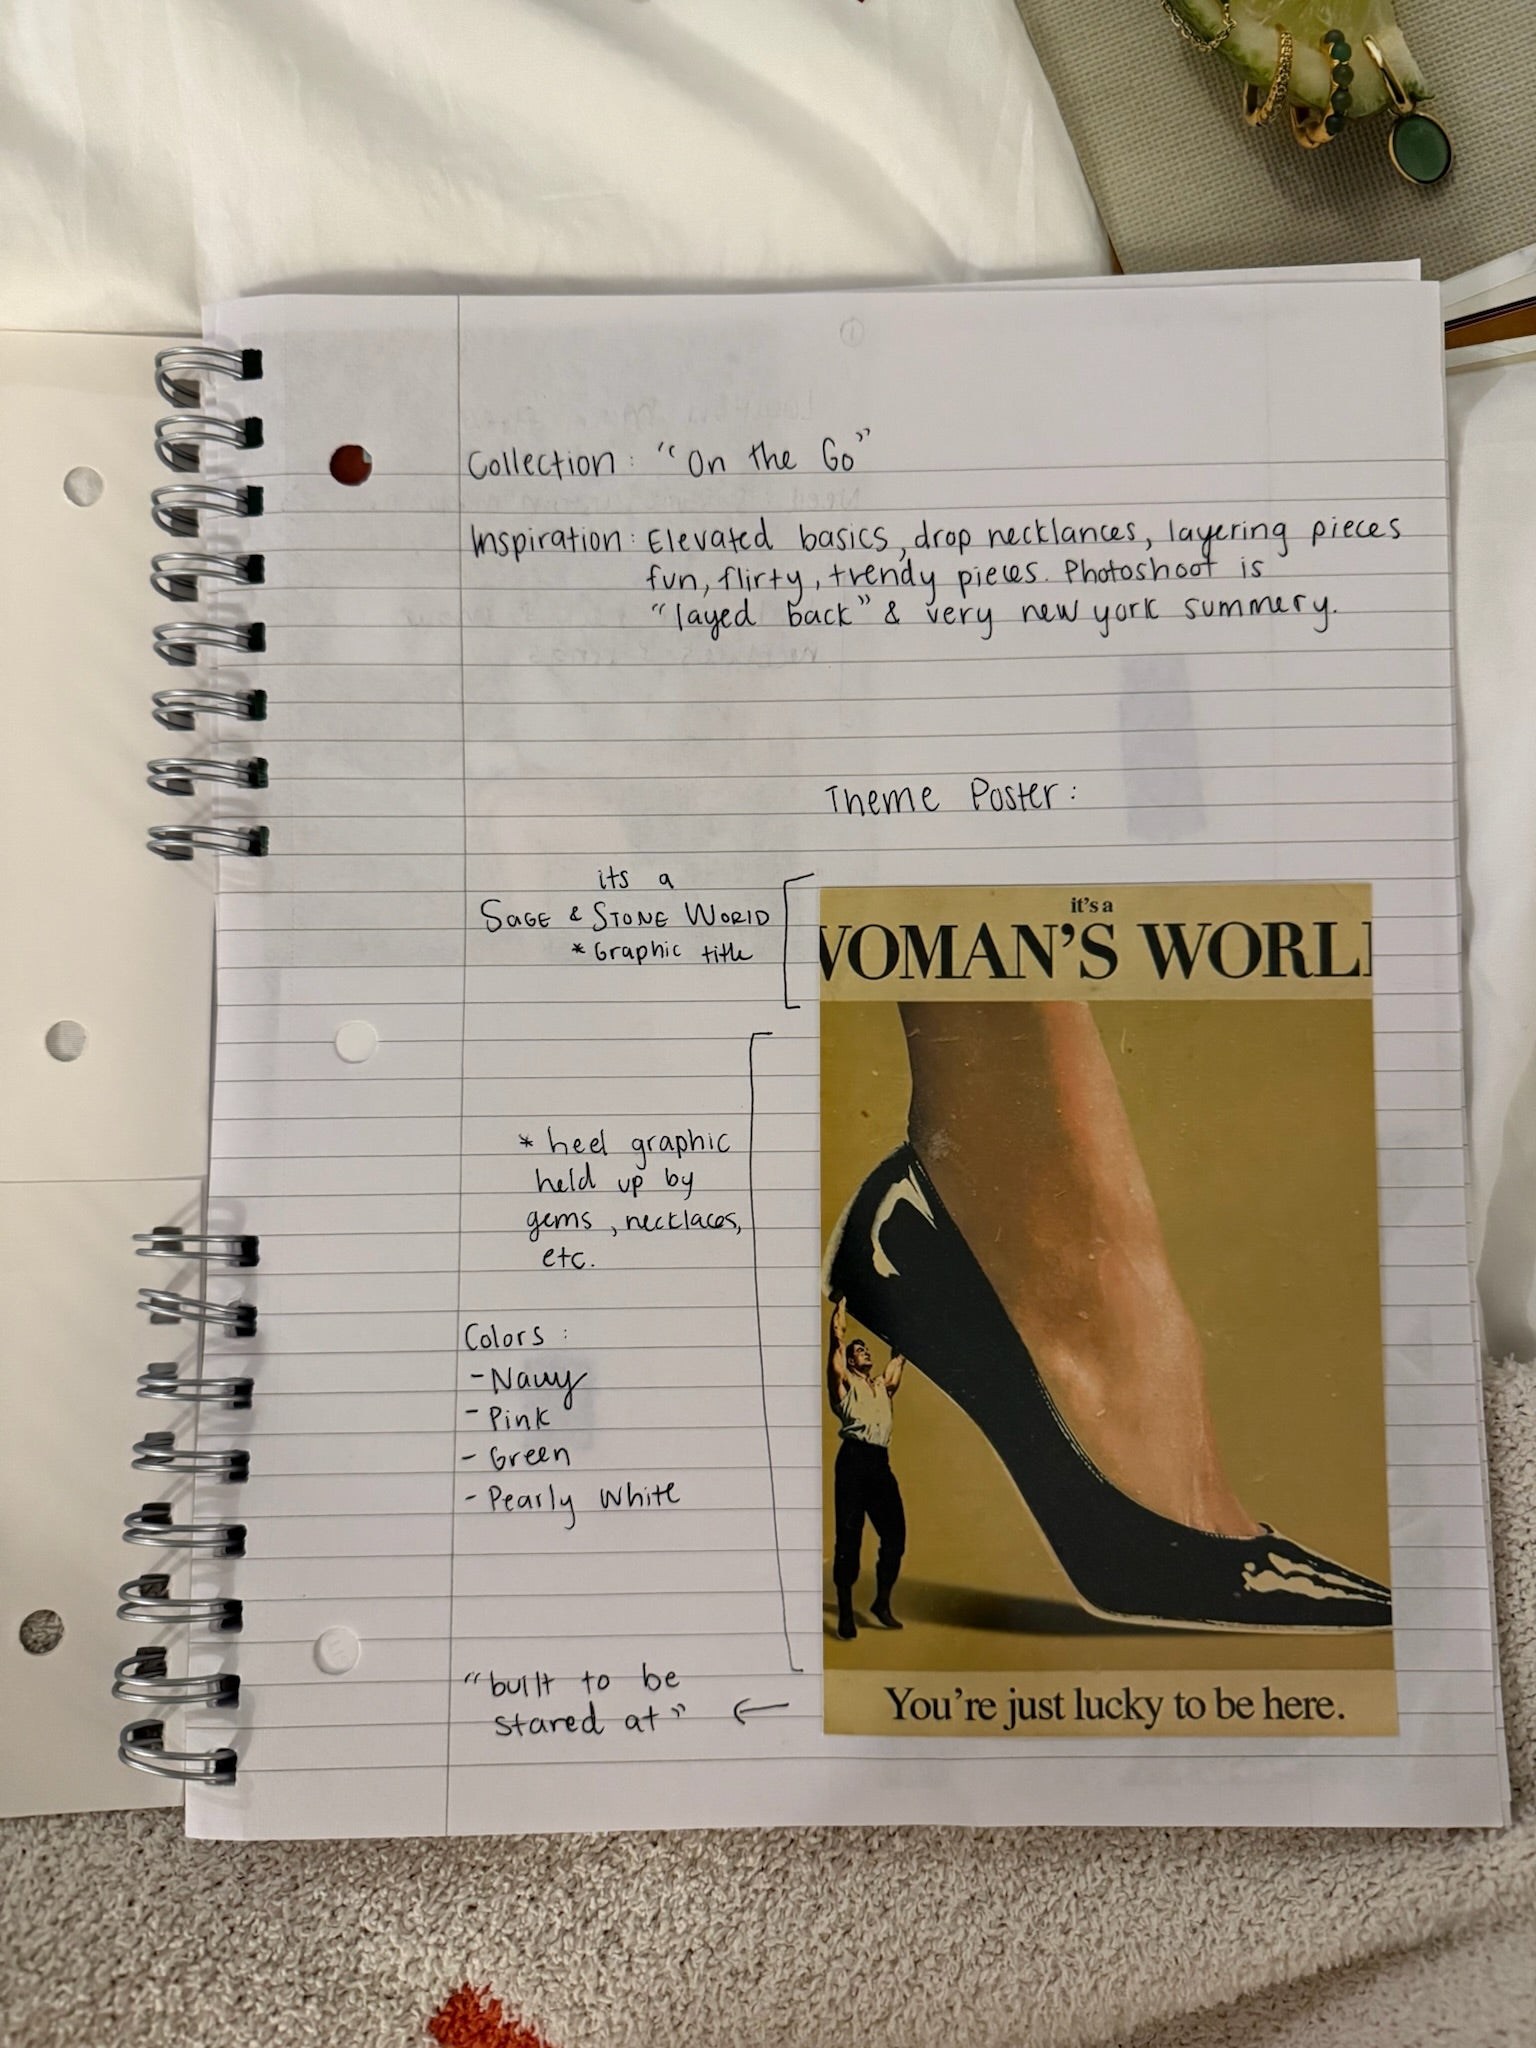 Collection: "On the Go"
Inspiration: Elevated basics, drop necklances, layering pieces
fun, flirty, trendy pieces. Photoshoot is
"layed back" & very new york summery.
Theme Poster:
its a
SAGE & STONE WORLD
* Graphic title
it's a
WOMAN'S WORLD
* heel graphic
held up by
gems, necklaces,
etc.
Colors:
- Navy
- Pink
- Green
- Pearly White
"built to be
stared at" ←
You're just lucky to be here.